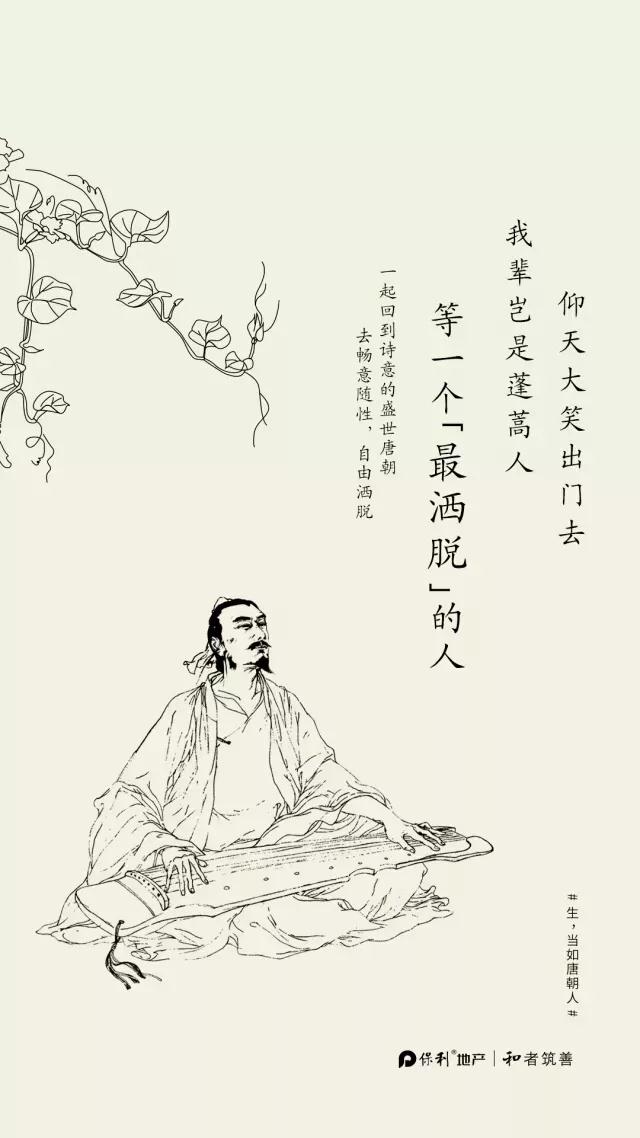 仰天大笑出门去
我辈岂是蓬蒿人
等一个「最洒脱」的人
一起回到诗意的盛世唐朝
去畅意随性，自由洒脱
#生，当如唐朝人#
保利®地产｜和者筑善